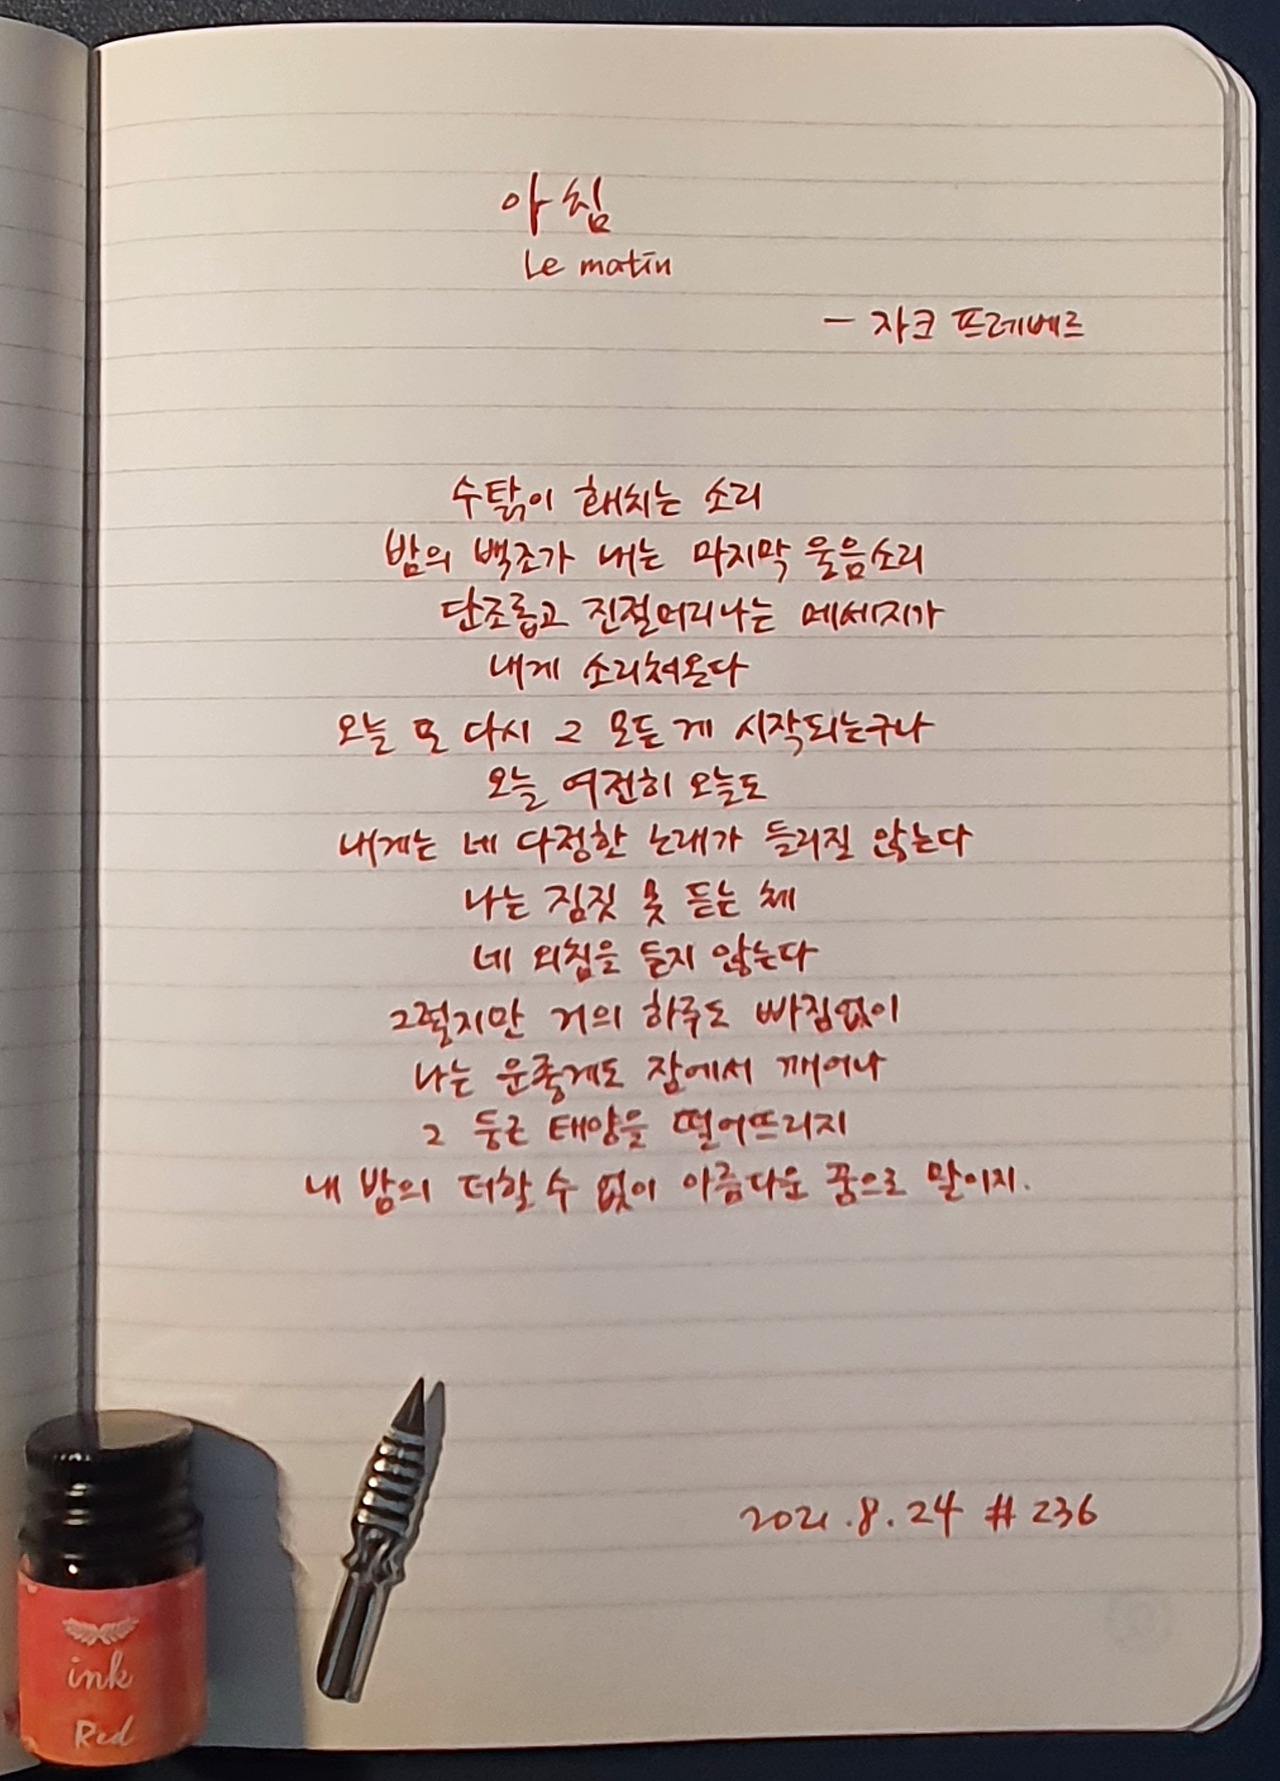 아침
Le matin
- 자크 프레베르
수탉이 홰치는 소리
밤의 백조가 내는 마지막 울음소리
단조롭고 진절머리나는 메세지가
내게 소리쳐온다
오늘 또 다시 그 모든 게 시작되는구나
오늘 여전히 오늘도
내게는 네 다정한 노래가 들리질 않는다
나는 짐짓 못 듣는 체
네 외침을 듣지 않는다
그렇지만 거의 하루도 빠짐없이
나는 운좋게도 잠에서 깨어나
그 둥근 태양을 떨어뜨리지
내 밤의 더할 수 없이 아름다운 꿈으로 말이지.
2021.8.24 #236
ink
Red